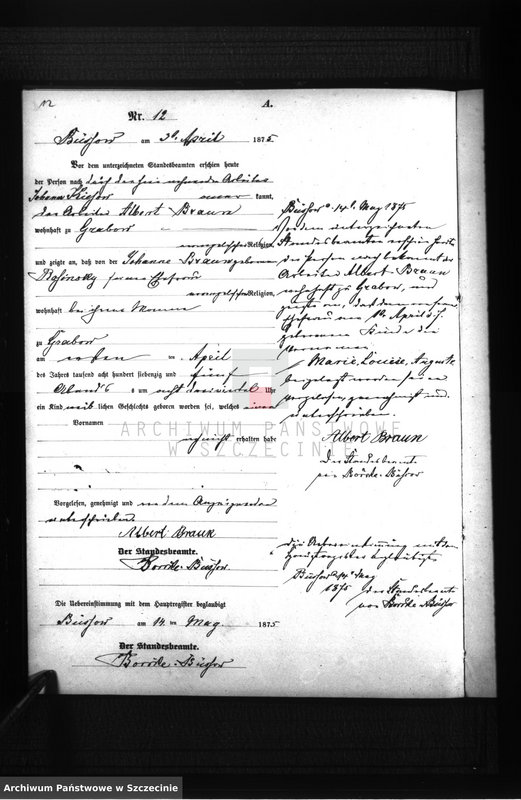 12
A.
Nr. 12
Büssow am 3t April 1875
Vor dem unterzeichneten Standesbeamten erschien heute
der Person nach durch den hier wohnenden Arbeiter
Johann kannt,
der Arbeiter Albert Braun
wohnhaft zu Grabow
evangelischer Religion,
und zeigte an, daß von der Johanne Braun geborenen
seiner Ehefrau
evangelischer Religion,
wohnhaft bei ihrem Manne
zu Grabow
am ersten ten April
des Jahres tausend acht hundert siebenzig und fünf
Abends um acht dreiviertel Uhr
ein Kind weiblichen Geschlechts geboren worden sei, welches einen
Vornamen
noch nicht erhalten habe
Vorgelesen, genehmigt und von dem Anzeigenden
unterschrieben.
Albert Braun
Der Standesbeamte.
Borcke-Büssow.
Die Uebereinstimmung mit dem Hauptregister beglaubigt
Büssow am 14. ten May 1875
Der Standesbeamte.
Borcke-Büssow
Büssow 14t May 1875
Vor dem unterzeichneten
Standesbeamten erschien heute
der Person nach bekannt der
Arbeiter Albert Braun
wohnhaft zu Grabow, und
zeigte an, daß dem von seiner
Ehefrau am 1t April d. J.
geborenen Kinde die
Vornamen
Marie, Louise, Auguste
beigelegt worden seien
Vorgelesen, genehmigt und
unterschrieben.
Albert Braun
Der Standesbeamte
von Borcke-Büssow
Die Uebereinstimmung mit dem
Hauptregister beglaubigt
Büssow 14t May
1875 der Standesbeamte
von Borcke Büssow
ARCHIWUM PAŃSTWOWE
W SZCZECINIE
Archiwum Państwowe w Szczecinie